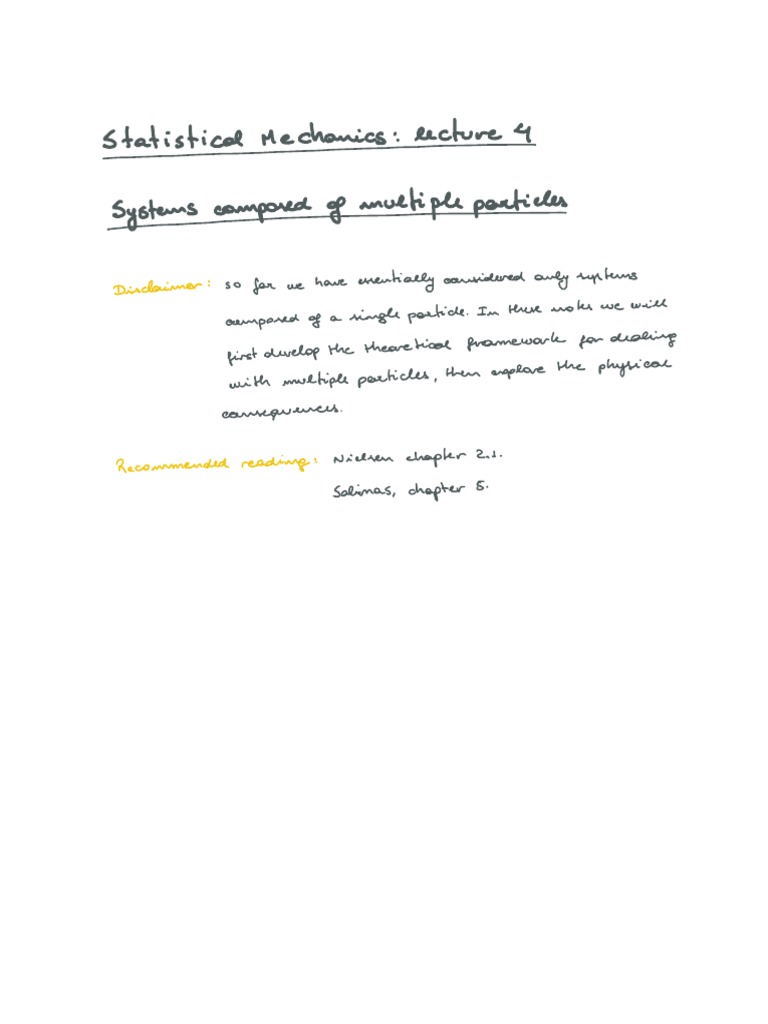 Statistical Mechanics: lecture 4
Systems composed of multiple particles
Disclaimer: so far we have essentially considered only systems
composed of a single particle. In these notes we will
first develop the theoretical framework for dealing
with multiple particles, then explore the physical
consequences.
Recommended reading: Nielsen chapter 2.1.
Salinas, chapter 5.